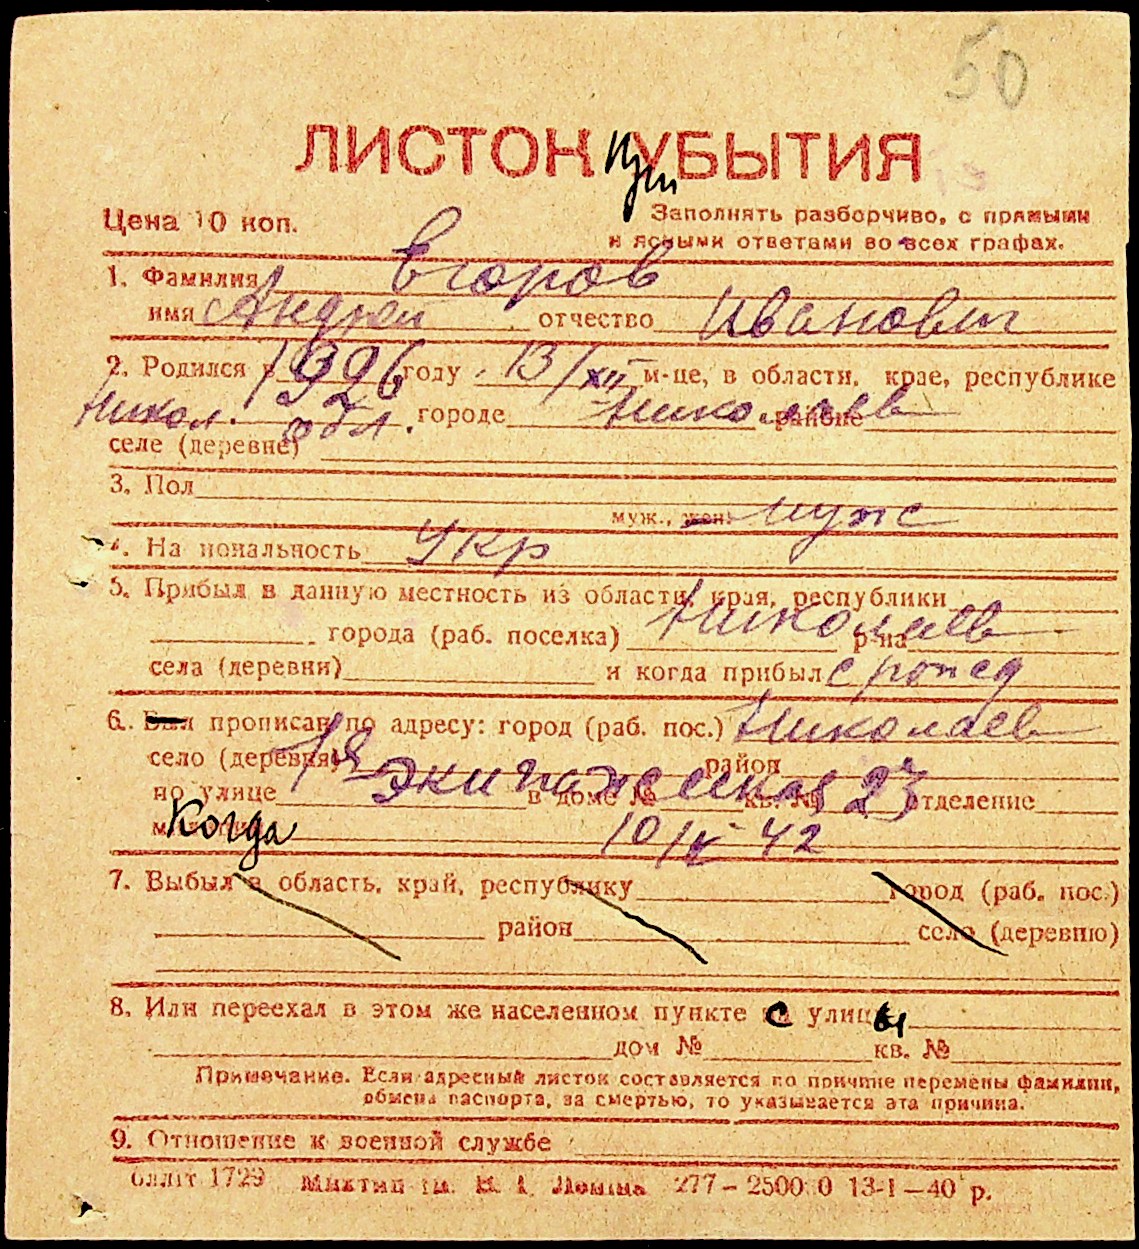 50
ЛИСТОК при УБЫТИЯ
Цена 10 коп.
Заполнять разборчиво, с прямыми
и ясными ответами во всех графах.
1. Фамилия Егоров
имя Андрей отчество Иванович
2. Родился в 1926 году 13/XII м-це, в области, крае, республике
Никол. обл. городе Николаев районе
селе (деревне)
3. Пол
муж., жен. муж
4. Национальность Укр
5. Прибыл в данную местность из области, края, республики
города (раб. поселка) Николаев р-на
села (деревни) и когда прибыл с рожд
6. Был прописан по адресу: город (раб. пос.) Николаев
село (деревня) район
по улице 1я Экипажеская в доме № кв. № 23 отделение
милиции Когда 10/IV 42
7. Выбыл в область, край, республику город (раб. пос.)
район село (деревню)
8. Или переехал в этом же населенном пункте с улицы
дом № кв. №
Примечание. Если адресный листок составляется по причине перемены фамилии,
обмена паспорта, за смертью, то указывается эта причина.
9. Отношение к военной службе
1729 277–2500 0 13-I–40 р.